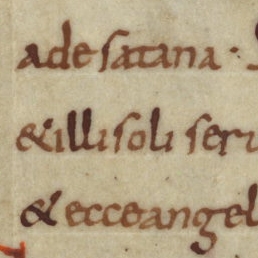 ade satana ·
& illi soli seru
& ecce angel